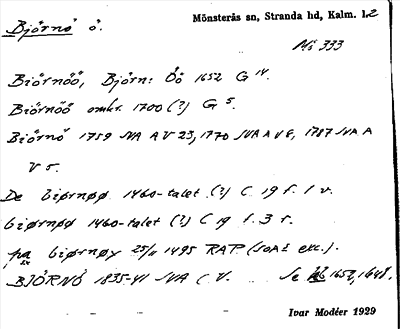 Björnö ö.
Mönsterås sn, Stranda hd, Kalm. l. 2
Nö 333
Biörnöö, Björn: Öö 1652 G 14.
Biörnöö omkr. 1700 (?) G 5.
Biörnö 1759 NA A V 23, 1770 NA A V 6, 1787 NA A
V 5.
De biørnøø 1460-talet (?) C 19 f. 1 v.
biørnøø 1460-talet (?) C 19 f. 3 r.
pa biørnøy 25/11 1495 RAP (SOÄ exc.).
BJÖRNÖ 1835-41 NA C V. Se 1652, 1648.
Ivar Modéer 1929